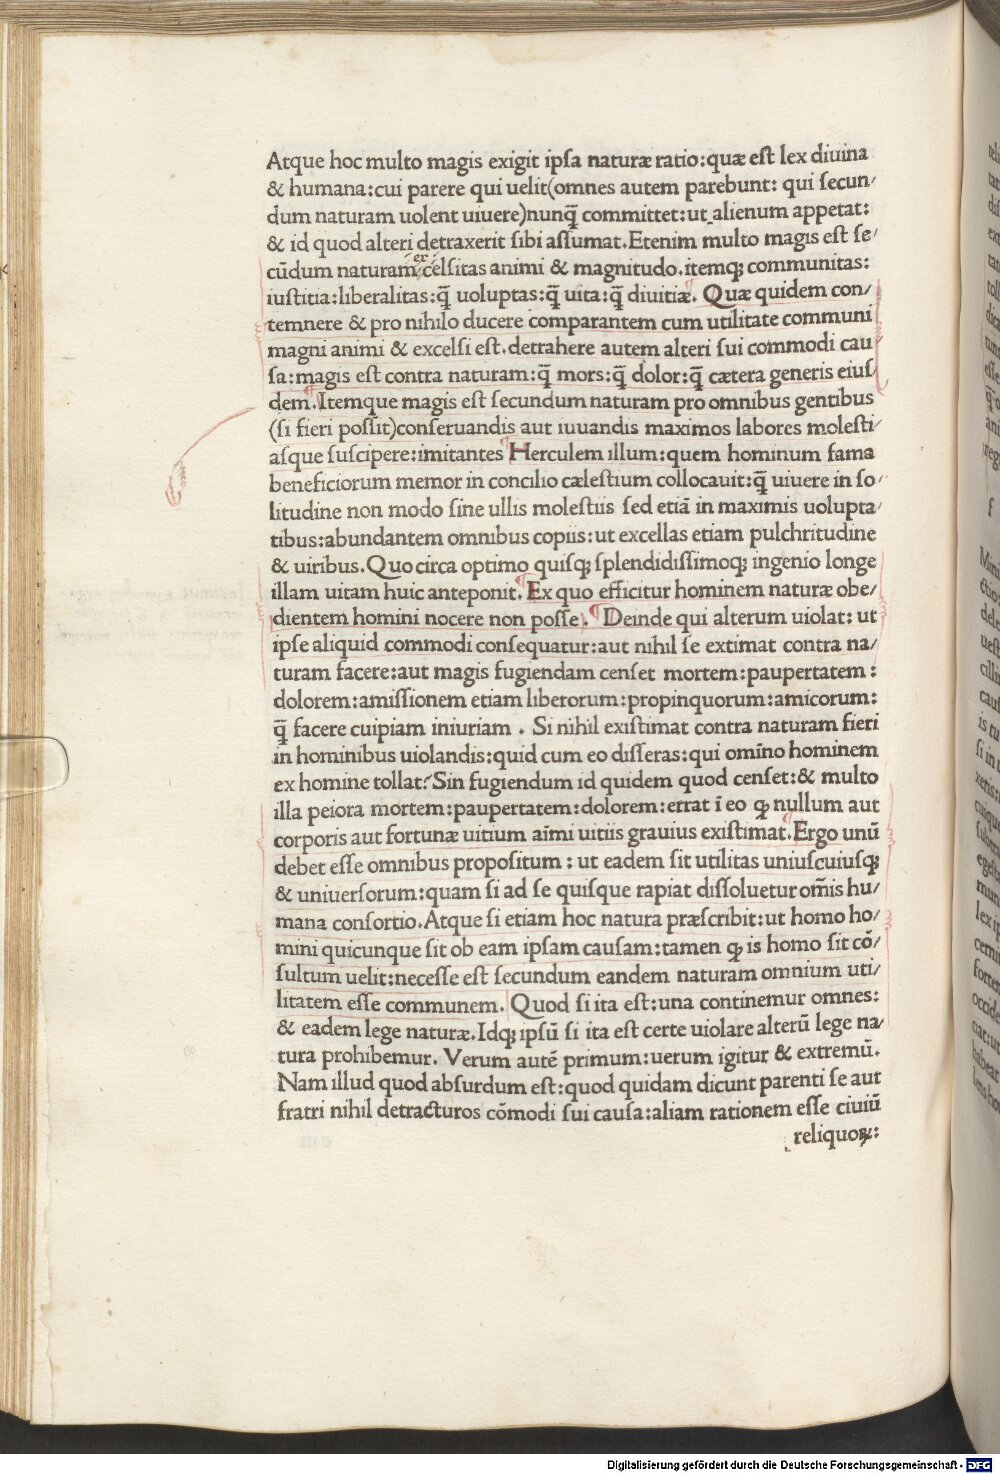 Atque hoc multo magis exigit ipſa naturæ ratio:quæ eſt lex diuina
& humana:cui parere qui uelit(omnes autem parebunt: qui ſecun/
dum naturam uolent uiuere)nunq̄ committet:ut alienum appetat:
& id quod alteri detraxerit ſibi aſſumat.Etenim multo magis eſt ſe/
ex
cūdum naturam celſitas animi & magnitudo.itemq; communitas:
iuſtitia:liberalitas:q̄ uoluptas:q̄ uita:q̄ diuitiæ. Quæ quidem con/
temnere & pro nihilo ducere comparantem cum utilitate communi
magni animi & excelſi eſt.detrahere autem alteri ſui commodi cau
ſa:magis eſt contra naturam:q̄ mors:q̄ dolor:q̄ cætera generis eiuſ
dem.Itemque magis eſt ſecundum naturam pro omnibus gentibus
(ſi fieri poſſit)conſeruandis aut iuuandis maximos labores moleſti/
aſque ſuſcipere:imitantes Herculem illum:quem hominum fama
beneficiorum memor in concilio cæleſtium collocauit:q̄ uiuere in ſo/
litudine non modo ſine ullis moleſtiis ſed etiā in maximis uolupta/
tibus:abundantem omnibus copiis:ut excellas etiam pulchritudine
& uiribus.Quo circa optimo quiſq; ſplendidiſſimoq; ingenio longe
illam uitam huic anteponit.Ex quo efficitur hominem naturæ obe/
dientem homini nocere non poſſe. Deinde qui alterum uiolat: ut
ipſe aliquid commodi conſequatur:aut nihil ſe extimat contra na/
turam facere:aut magis fugiendam cenſet mortem:paupertatem:
dolorem:amiſſionem etiam liberorum:propinquorum:amicorum:
q̄ facere cuipiam iniuriam . Si nihil exiſtimat contra naturam fieri
in hominibus uiolandis:quid cum eo diſſeras:qui omīno hominem
ex homine tollat?Sin fugiendum id quidem quod cenſet:& multo
illa peiora mortem:paupertatem:dolorem:errat ī eo ꝙ nullum aut
corporis aut fortunæ uitium aīmi uitiis grauius exiſtimat.Ergo unū
debet eſſe omnibus propoſitum : ut eadem ſit utilitas uniuſcuiuſq;
& uniuerſorum:quam ſi ad ſe quiſque rapiat diſſoluetur om̄is hu/
mana conſortio.Atque ſi etiam hoc natura præſcribit:ut homo ho/
mini quicunque ſit ob eam ipſam cauſam:tamen ꝙ is homo ſit cō/
ſultum uelit:neceſſe eſt ſecundum eandem naturam omnium uti/
litatem eſſe communem. Quod ſi ita eſt:una continemur omnes:
& eadem lege naturæ.Idq; ipſū ſi ita eſt certe uiolare alterū lege na/
tura prohibemur. Verum autē primum:uerum igitur & extremū.
Nam illud quod abſurdum eſt:quod quidam dicunt parenti ſe aut
fratri nihil detracturos cōmodi ſui cauſa:aliam rationem eſſe ciuiū
reliquoꝝ:
Digitalisierung gefördert durch die Deutsche Forschungsgemeinschaft - DFG